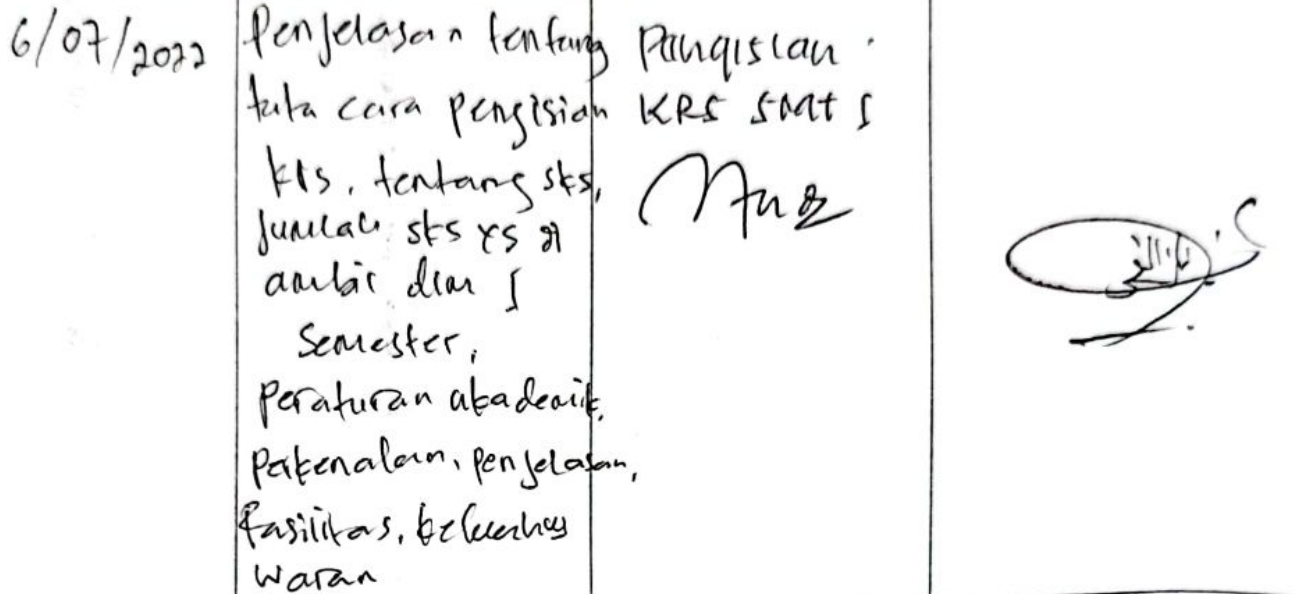 6/07/2022
Penjelasan tentang
tata cara pengisian
krs, tentang sks,
Jumlah sks yg di
ambil dlm 1
Semester,
peraturan akademik,
perkenalan, penjelasan,
fasilitas,
waran
Pengisian
KRS SMt 1